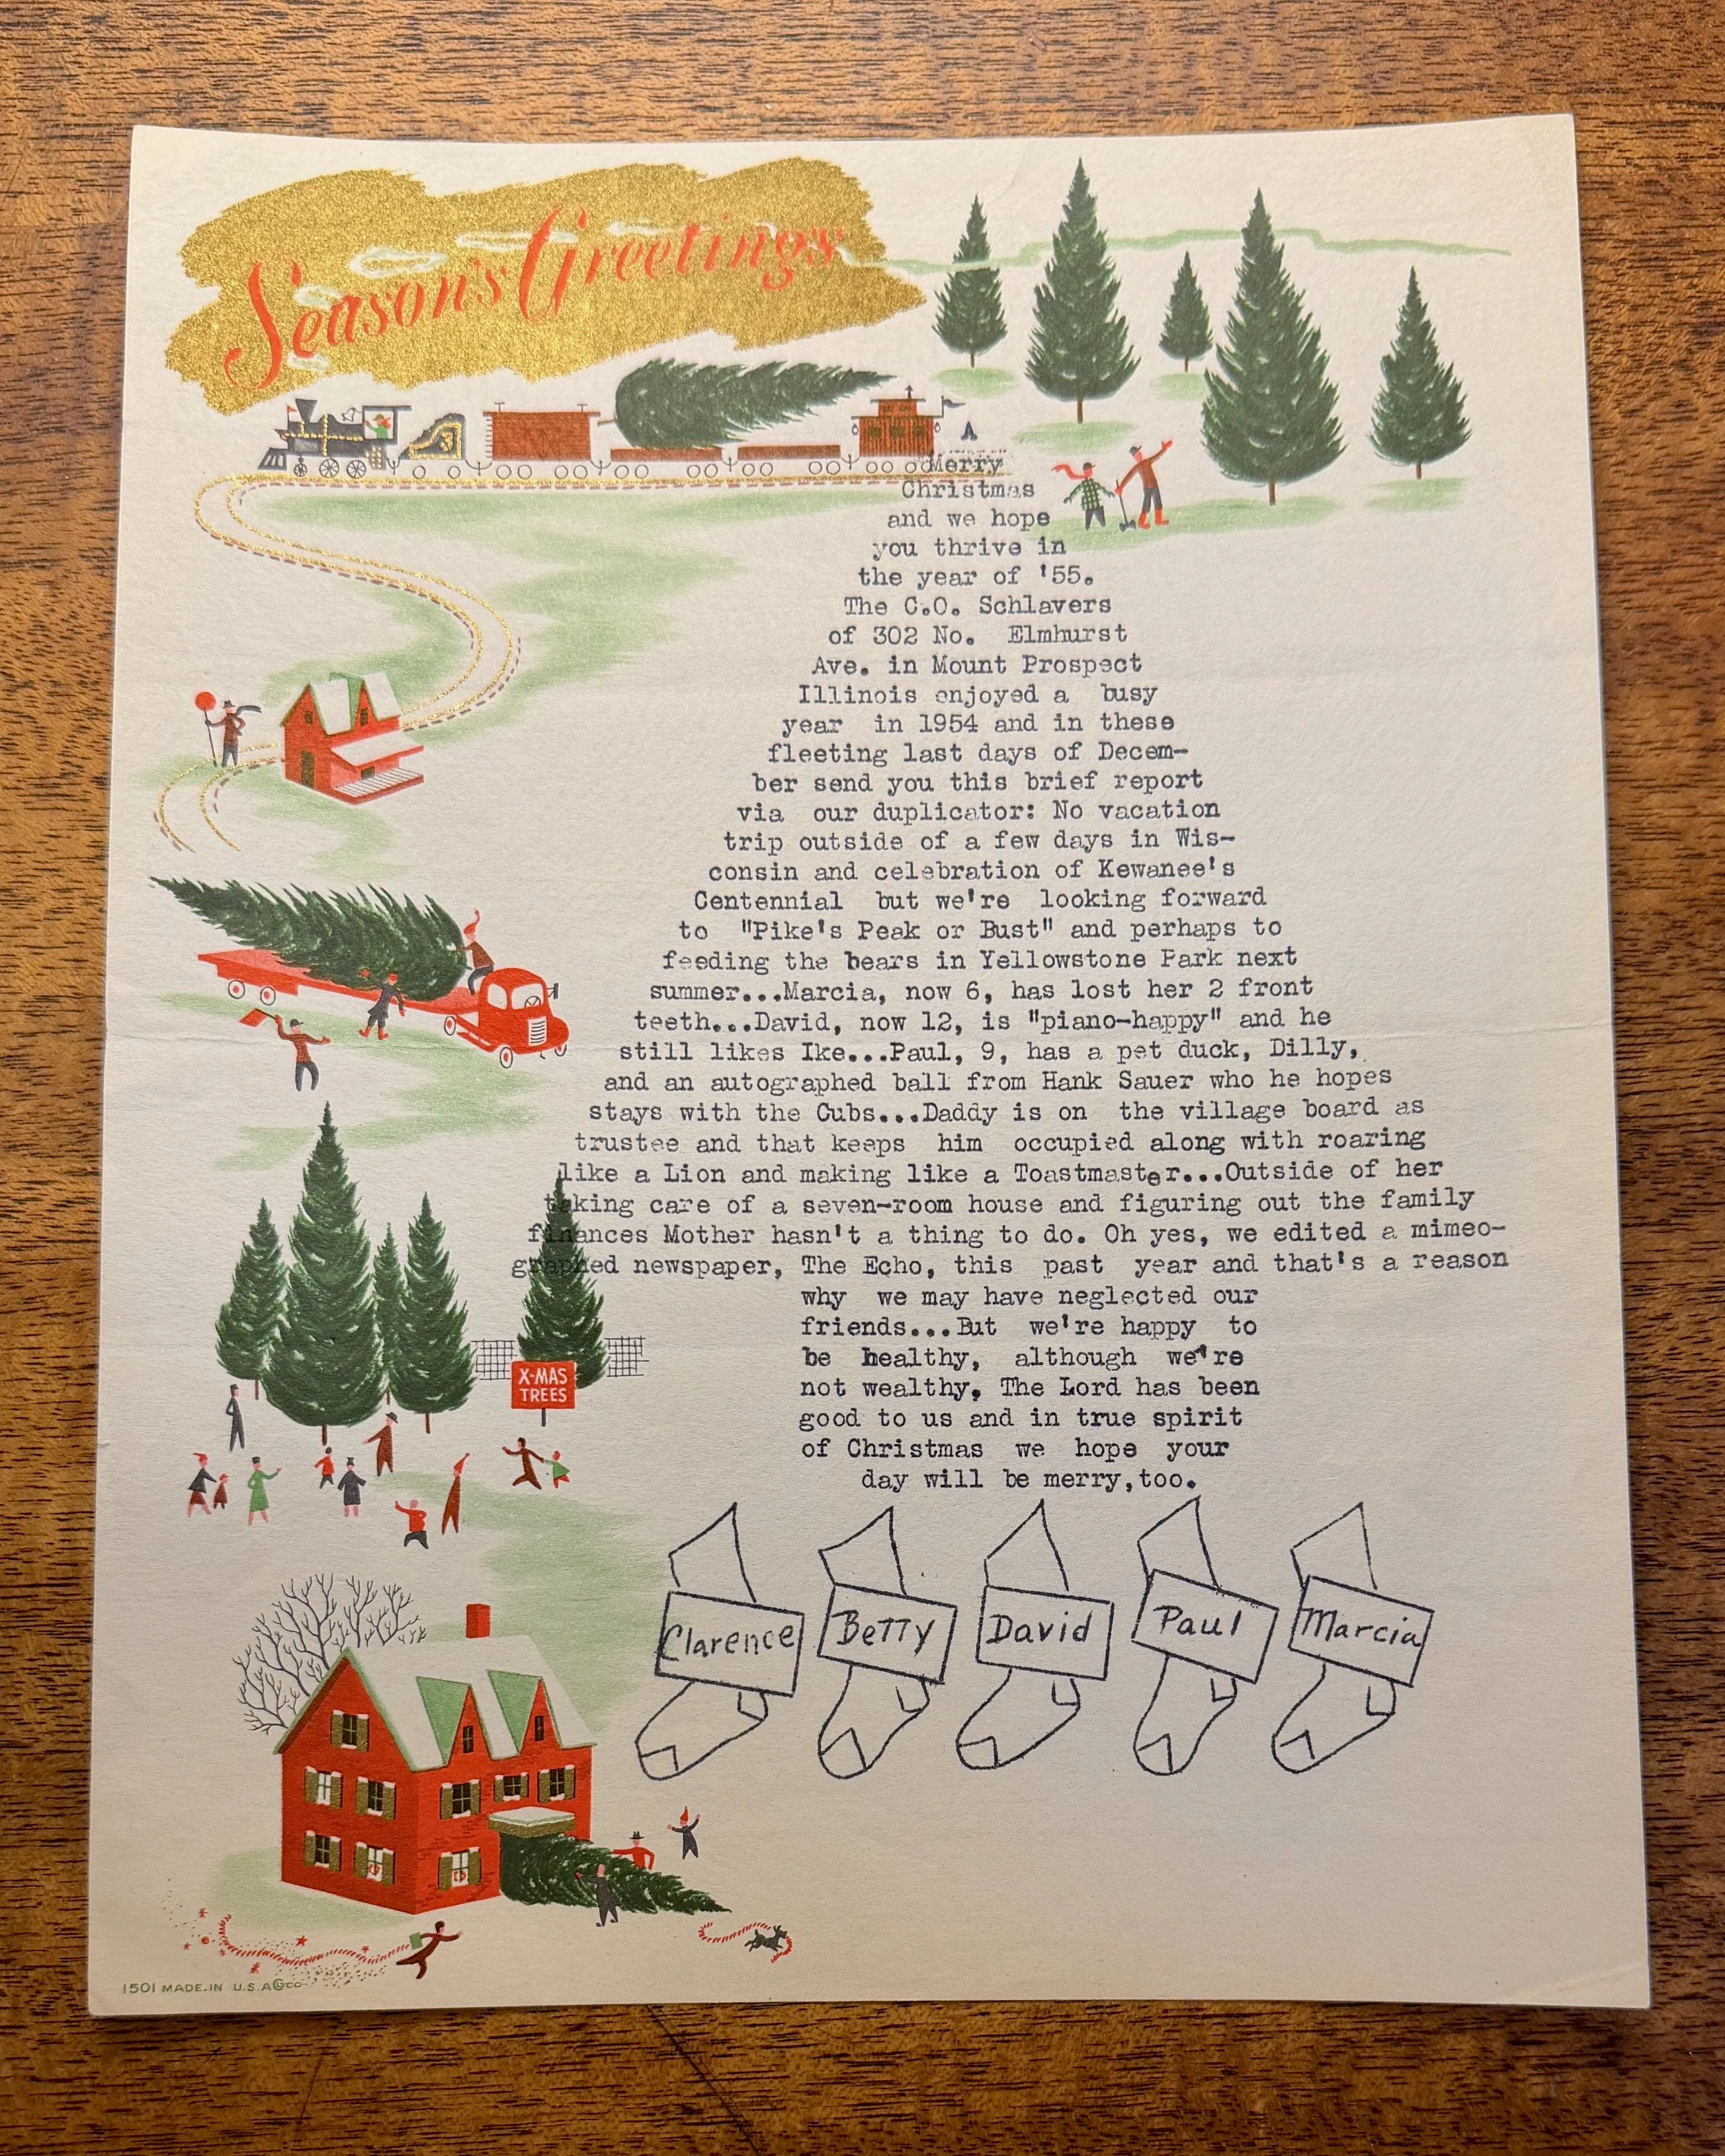 Season's Greetings
3
Merry
Christmas
and we hope
you thrive in
the year of '55.
The C.O. Schlavers
of 302 No. Elmhurst
Ave. in Mount Prospect
Illinois enjoyed a busy
year in 1954 and in these
fleeting last days of Decem-
ber send you this brief report
via our duplicator: No vacation
trip outside of a few days in Wis-
consin and celebration of Kewanee's
Centennial but we're looking forward
to "Pike's Peak or Bust" and perhaps to
feeding the bears in Yellowstone Park next
summer...Marcia, now 6, has lost her 2 front
teeth...David, now 12, is "piano-happy" and he
still likes Ike...Paul, 9, has a pet duck, Dilly,
and an autographed ball from Hank Sauer who he hopes
stays with the Cubs...Daddy is on the village board as
trustee and that keeps him occupied along with roaring
like a Lion and making like a Toastmaster...Outside of her
taking care of a seven-room house and figuring out the family
finances Mother hasn't a thing to do. Oh yes, we edited a mimeo-
graphed newspaper, The Echo, this past year and that's a reason
why we may have neglected our
friends...But we're happy to
be healthy, although we're
not wealthy, The Lord has been
good to us and in true spirit
of Christmas we hope your
day will be merry,too.
X-MAS
TREES
Clarence Betty David Paul Marcia
1501 MADE IN U.S.A.